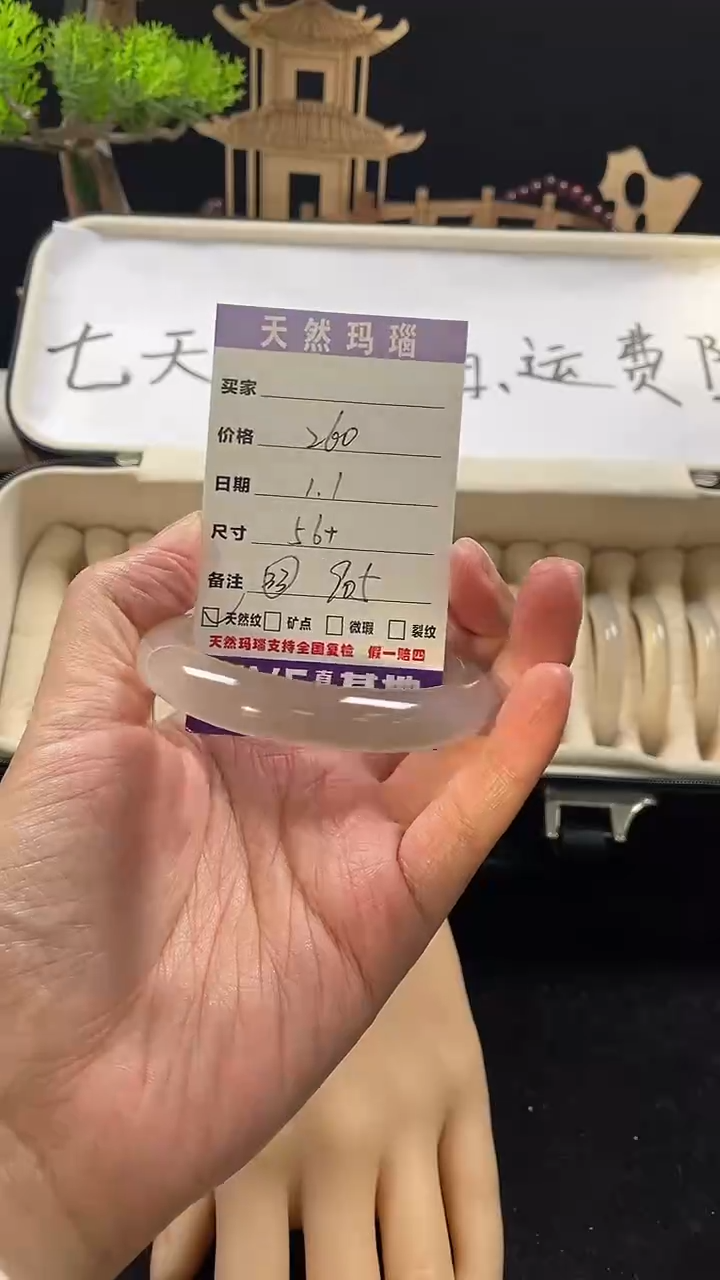 七天
、运费
天然玛瑙
买家
价格 260
日期 1.1
尺寸 56+
备注
天然纹 矿点 微瑕 裂纹
天然玛瑙支持全国复检 假一赔四
真基地